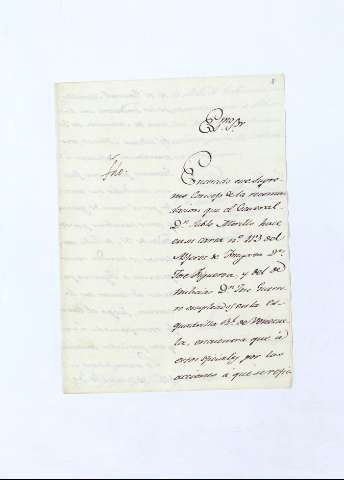 Exmo. Sr.
Fho.
Enterado ese Supre-
mo Consejo de la recomen-
dacion que el General
Dn. Pablo Morillo hace
en su carta nº. 113 del
Alferez de Fragata Dn.
Jose Figueroa, y del de
milicias Dn. Jose Guerre-
ro empleados en la es-
quadrilla Rl. de Venezue-
la, encuentra que á
estos oficiales por las
acciones á que se refie-